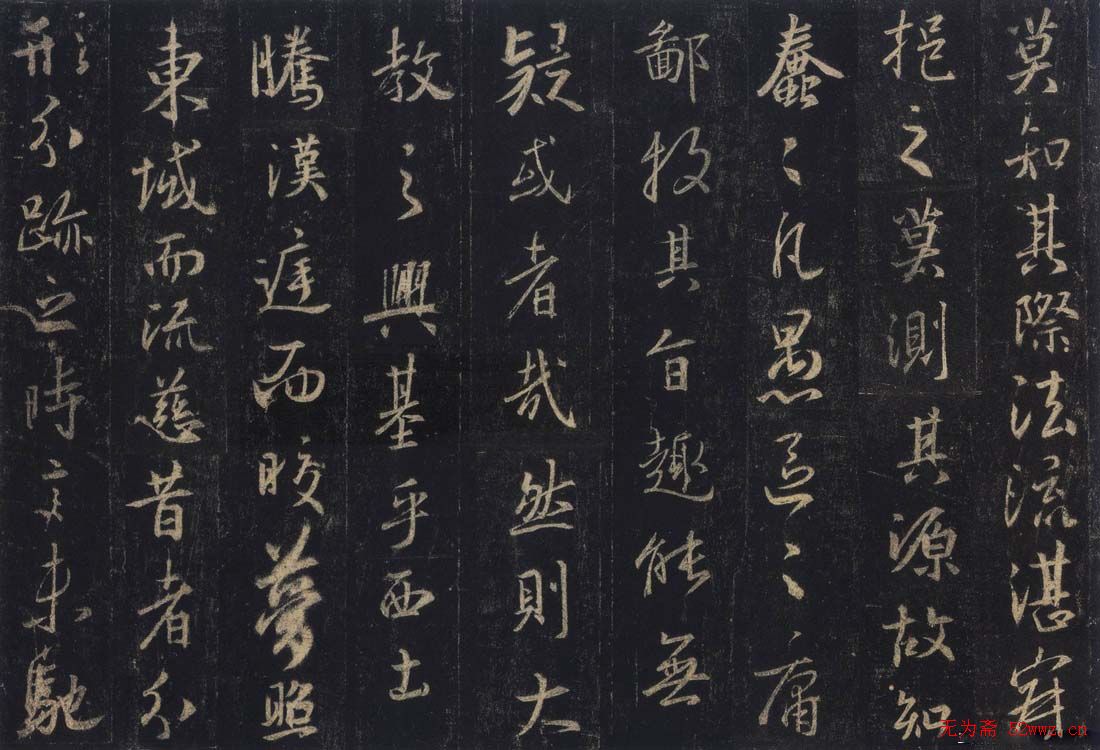 莫知其際法流湛寂
挹之莫測其源故知
蠢〻凡愚區〻庸
鄙投其旨趣能無
疑或者哉然則大
教之興基乎西土
騰漢庭而皎夢照
東域而流慈昔者分
形分跡之時言未馳
无为斋 52wwz.cn